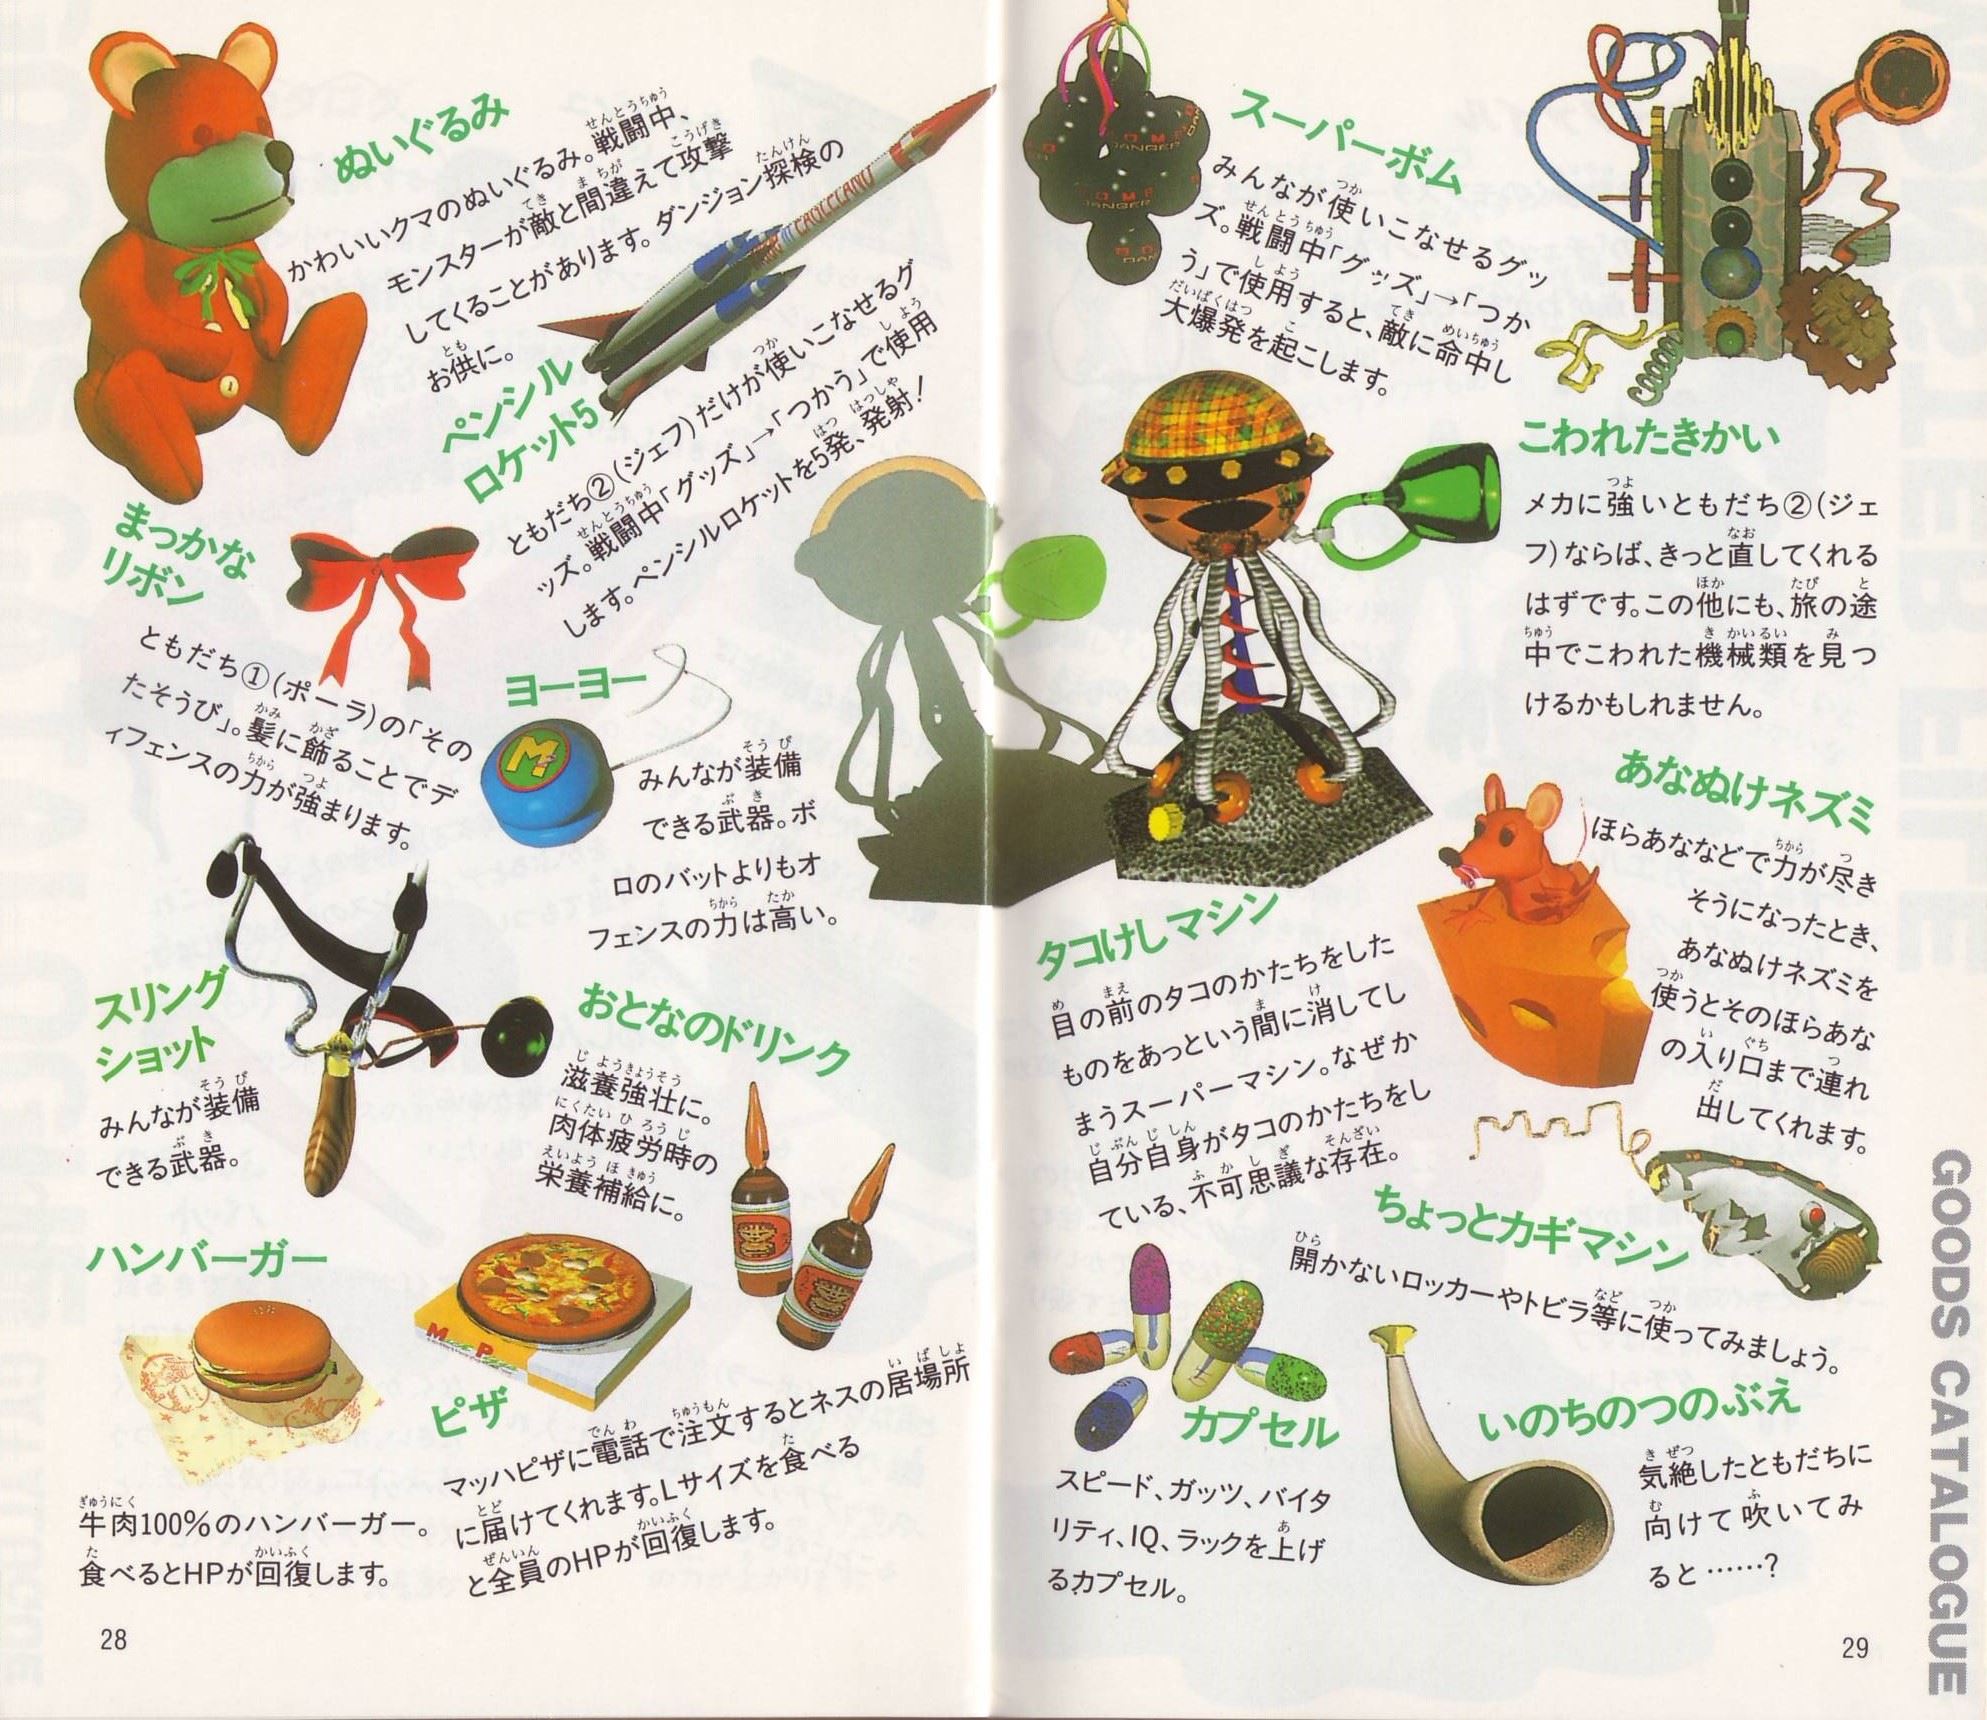 ぬいぐるみ
かわいいクマのぬいぐるみ。戦闘中、
モンスターが敵と間違えて攻撃
してくることがあります。ダンジョン探検の
お供に。
ペンシル
ロケット5
ともだち②(ジェフ)だけが使いこなせるグ
ッズ。戦闘中「グッズ」→「つかう」で使用
します。ペンシルロケットを5発、発射!
まっかな
リボン
ともだち①(ポーラ)の「その
たそうび」。髪に飾ることでデ
ィフェンスの力が強まります。
ヨーヨー
みんなが装備
できる武器。ボ
ロのバットよりもオ
フェンスの力は高い。
スリング
ショット
みんなが装備
できる武器。
おとなのドリンク
滋養強壮に。
肉体疲労時の
栄養補給に。
ハンバーガー
牛肉100%のハンバーガー。
食べるとHPが回復します。
M P
ピザ
マッハピザに電話で注文するとネスの居場所
に届けてくれます。Lサイズを食べる
と全員のHPが回復します。
28
スーパーボム
みんなが使いこなせるグッ
ズ。戦闘中「グッズ」→「つか
う」で使用すると、敵に命中し
大爆発を起こします。
こわれたきかい
メカに強いともだち②(ジェ
フ)ならば、きっと直してくれる
はずです。この他にも、旅の途
中でこわれた機械類を見つ
けるかもしれません。
あなぬけネズミ
ほらあななどで力が尽き
そうになったとき、
あなぬけネズミを
使うとそのほらあな
の入り口まで連れ
出してくれます。
タコけしマシン
目の前のタコのかたちをした
ものをあっという間に消してし
まうスーパーマシン。なぜか
自分自身がタコのかたちをし
ている、不可思議な存在。
ちょっとカギマシン
開かないロッカーやトビラ等に使ってみましょう。
カプセル
スピード、ガッツ、バイタ
リティ、IQ、ラックを上げ
るカプセル。
いのちのつのぶえ
気絶したともだちに
向けて吹いてみ
ると……?
GOODS CATALOGUE
29